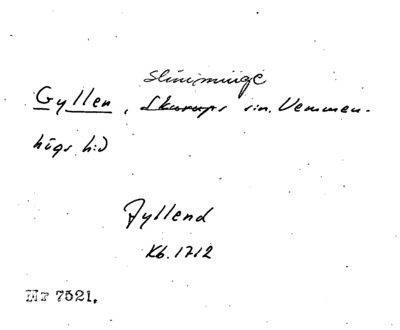 Slimminge
Gyllen, Skurups sn. Vemmen-
högs hd
Jyllend
Kb. 1712
Mr 7521.